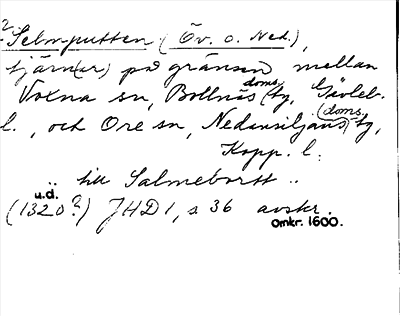 2 Selnputten (Öv. o. Ned.),
tjärn(ar) på gränsen mellan
Voxna sn, Bollnäs doms. tg, Gävleb.
l., och Ore sn, Nedansiljans (doms.) tg,
Kopp. l.
till Salmebortt ..
u.d.
(1320?) JHD 1, s 36 avskr.
omkr. 1600.